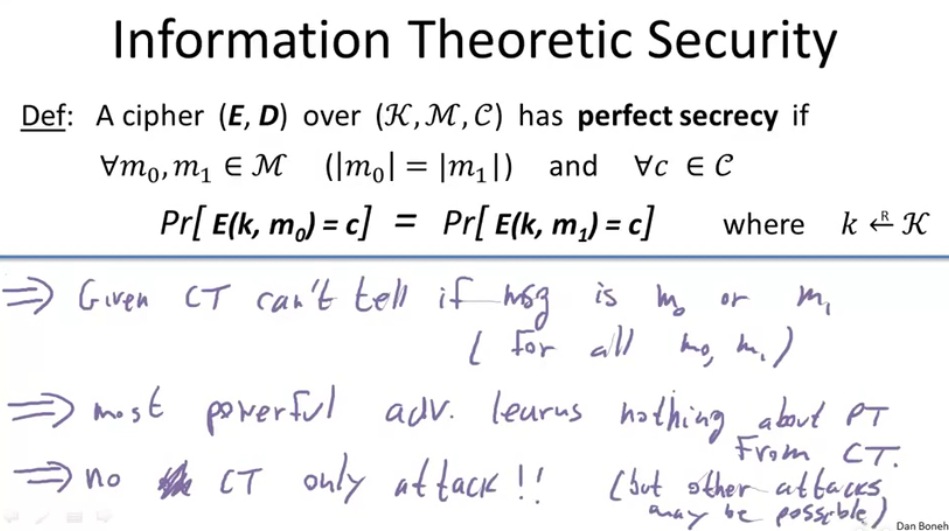 Information Theoretic Security
Def: A cipher (E, D) over (𝒦, ℳ, 𝒞) has perfect secrecy if
∀m₀, m₁ ∈ ℳ (|m₀| = |m₁|) and ∀c ∈ 𝒞
Pr[ E(k, m₀) = c] = Pr[ E(k, m₁) = c] where k ←ᴿ 𝒦
⇒ Given CT can't tell if msg is m₀ or m₁
( for all m₀, m₁ )
⇒ most powerful adv. learns nothing about PT
From CT.
⇒ no CT only attack!! (but other attacks
may be possible)
Dan Boneh